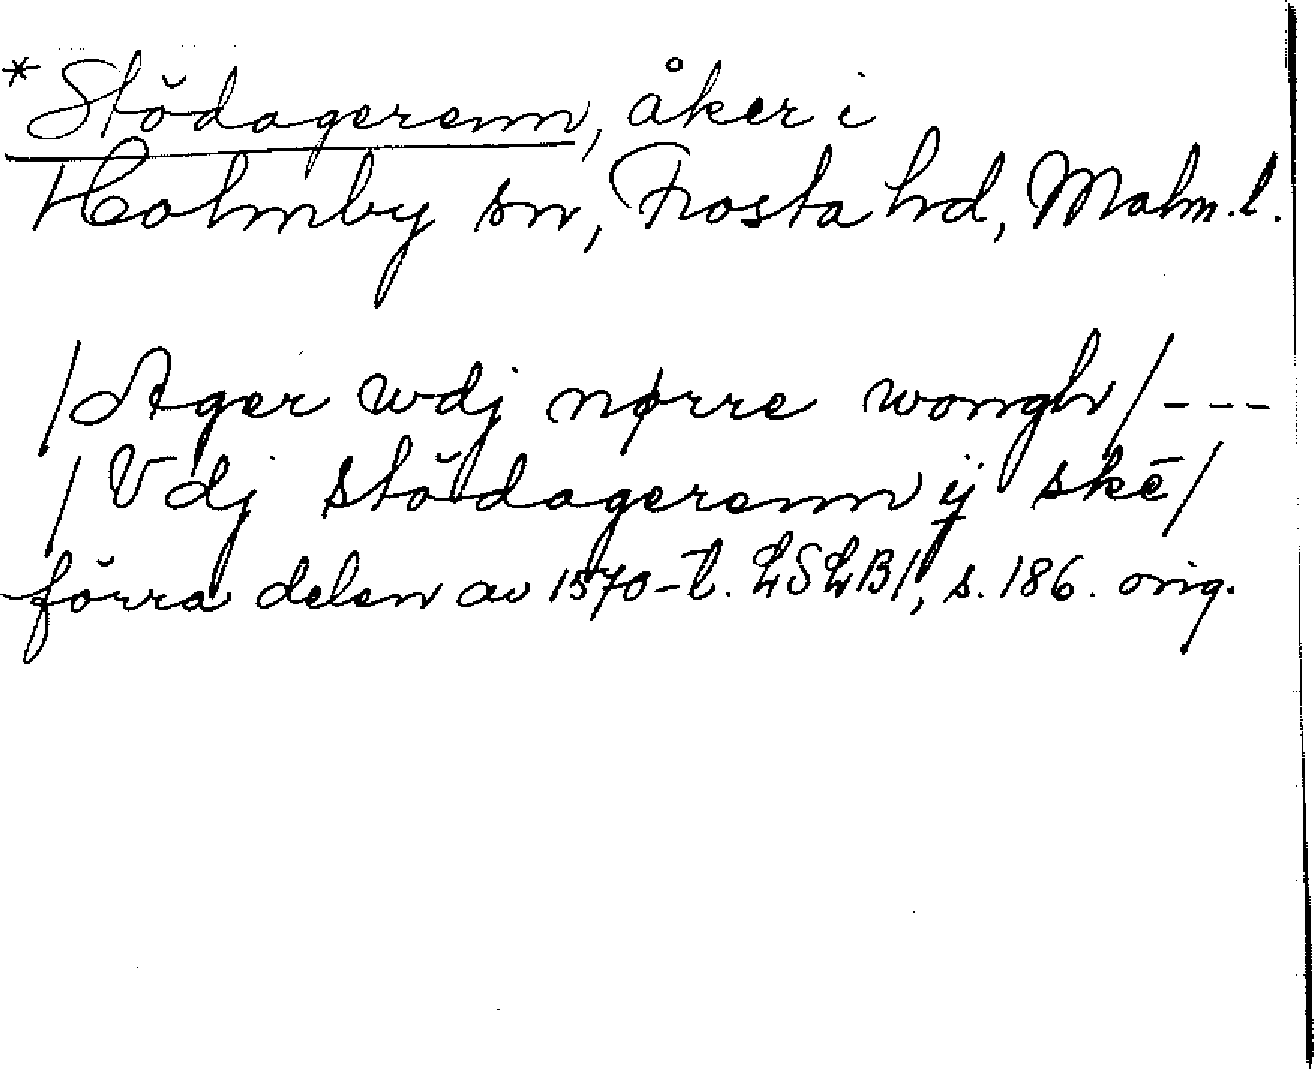 *Stŏdagerenn, åker i
Holmby sn, Frosta hd, Malm.l.
/Ager wdj nørre wongh/---
/Vdj stŏdagerenn ij skē/
förra delen av 1570-t. LSLB1, s.186. orig.